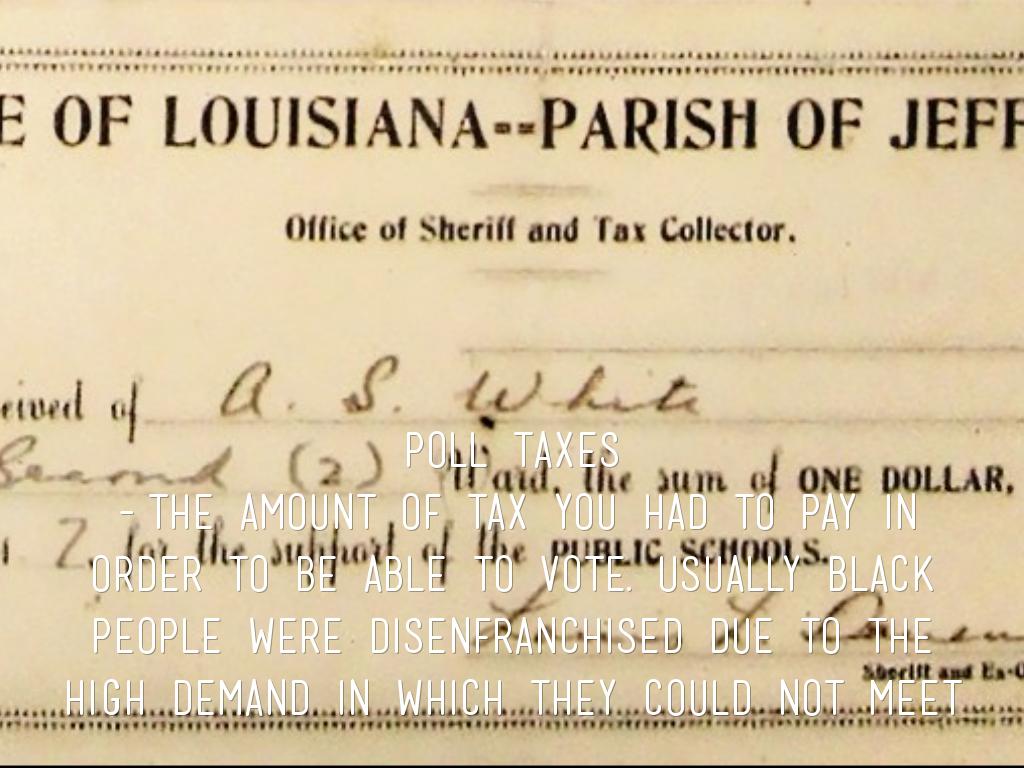 E OF LOUISIANA--PARISH OF JEFF
Office of Sheriff and Tax Collector.
eived of A. S. White
Second (2) Ward, the sum of ONE DOLLAR,
7, for the support of the PUBLIC SCHOOLS.
Sheriff and Ex-O
POLL TAXES
- THE AMOUNT OF TAX YOU HAD TO PAY IN
ORDER TO BE ABLE TO VOTE. USUALLY BLACK
PEOPLE WERE DISENFRANCHISED DUE TO THE
HIGH DEMAND IN WHICH THEY COULD NOT MEET